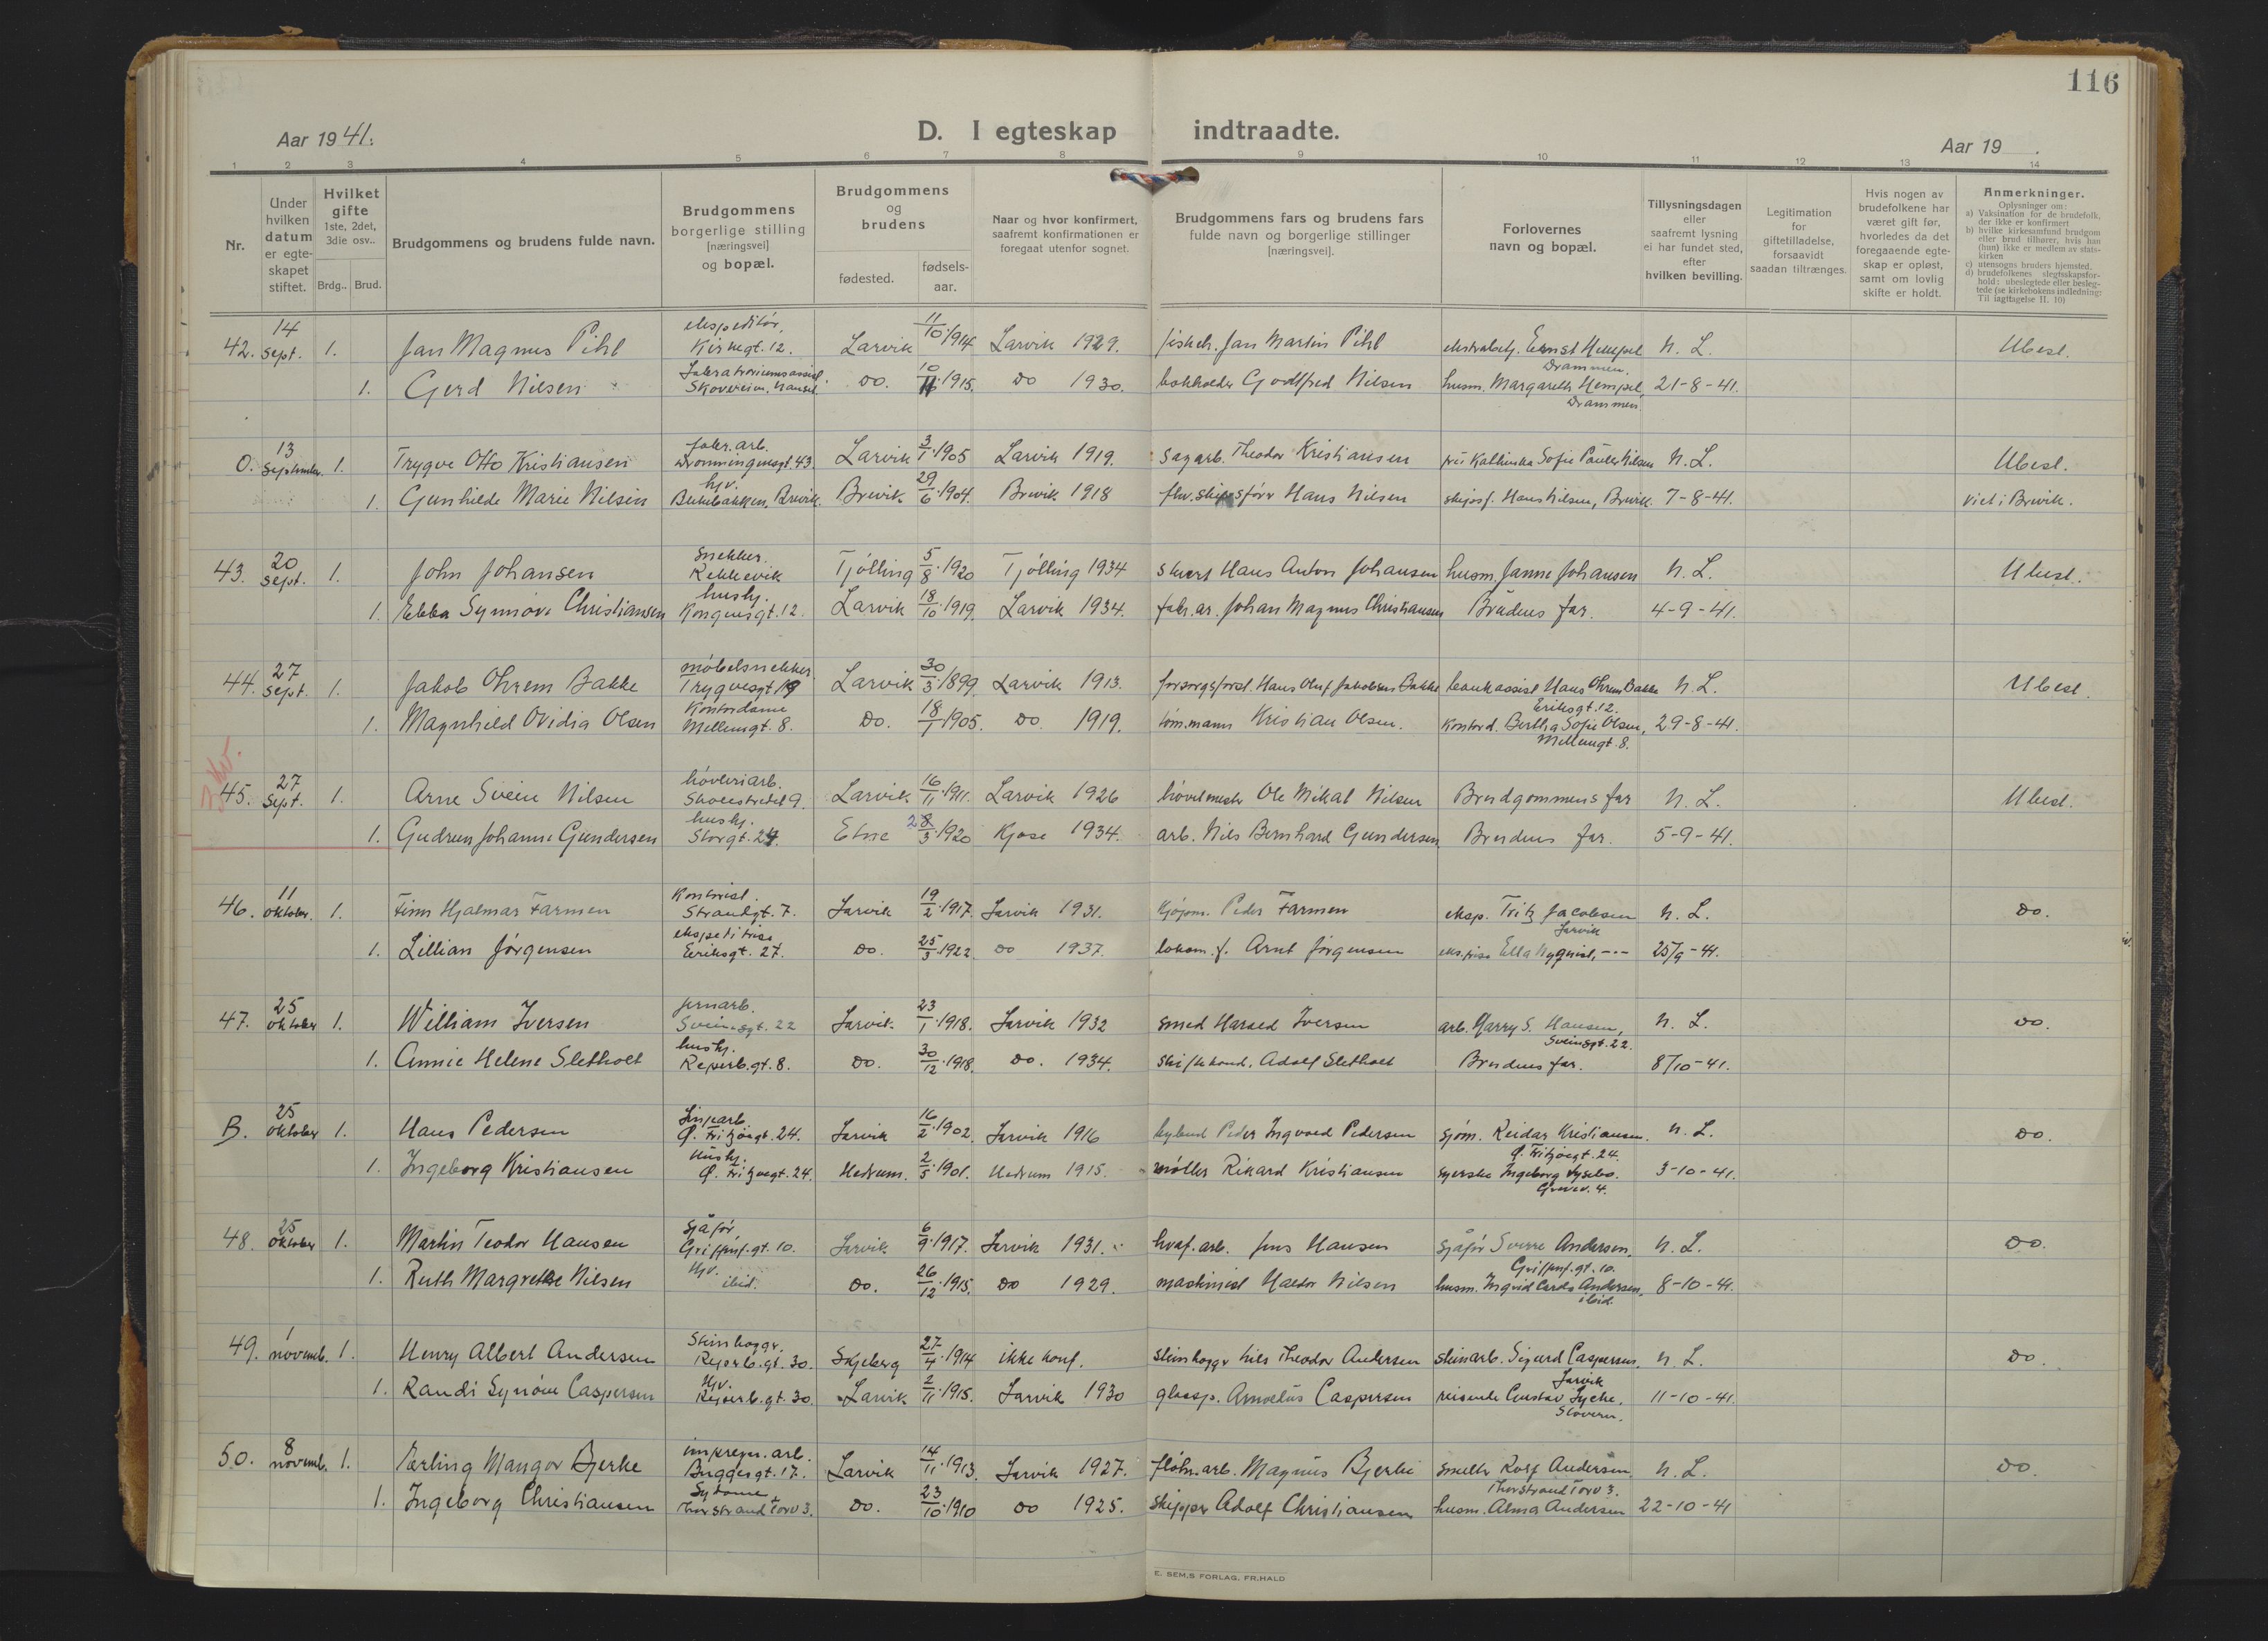 116
Aar 1941.
D. I egteskap indtraadte.
Aar 19 .
1 2 3 4 5 6 7 8 9 10 11 12 13 14
Nr.
Under hvilken datum er egte-skapet stiftet.
Hvilket gifte 1ste, 2det, 3die osv..
Brdg.. Brud.
Brudgommens og brudens fulde navn.
Brudgommens borgerlige stilling [næringsvei] og bopæl.
Brudgommens og brudens
fødested. fødsels-aar.
Naar og hvor konfirmert, saafremt konfirmationen er foregaat utenfor sognet.
Brudgommens fars og brudens fars fulde navn og borgerlige stillinger [næringsvei].
Forlovernes navn og bopæl.
Tillysningsdagen eller saafremt lysning ei har fundet sted, efter hvilken bevilling.
Legitimation for giftetilladelse, forsaavidt saadan tiltrænges.
Hvis nogen av brudefolkene har været gift før, hvorledes da det foregaaende egte-skap er opløst, samt om lovlig skifte er holdt.
Anmerkninger.
Oplysninger om:
a) Vaksination for de brudefolk, der ikke er konfirmert
b) hvilke kirkesamfund brudgom eller brud tilhører, hvis han (hun) ikke er medlem av stats-kirken
c) utensogns bruders hjemsted.
d) brudefolkenes slegtsskapsfor-hold: ubeslegtede eller besleg-tede (se kirkebokens indledning: Til iagttagelse II. 10)
42. 14 Sept. 1. Jan Magnus Pihl ekspeditør, Kirkegt. 12. Larvik 11/10.1914 Larvik 1929. Jan Martin Pihl Ernst Hempel Drammen. N. L. Ubesl.
1. Gerd Nilsen Do. 10/11.1915. Do 1930. bokholder Godtfred Nilsen husm. Margareth Hempel, Drammen. 21-8-41.
0. 13 September. 1. Trygve Otto Kristiansen fabr. arb. Dronningensgt. 43. Larvik 3/1.1905 Larvik 1919. Sagarb. Theodor Kristiansen N. L. Ubesl.
1. Gunhilde Marie Nilsen hjv. Brevik. Brevik 29/6.1904. Brevik 1918 fhv. skipsfører Hans Nilsen skipsf. Hans Nilsen, Brevik. 7-8-41. Viet i Brevik.
43. 20 Sept. 1. John Johansen Snekker. Rekkevik Tjølling 5/8.1920 Tjølling 1934 Hans Anton Johansen husm. Janne Johansen N. L. Ubesl.
1. Ebba Synnøve Christiansen hushj. Kongensgt. 12. Larvik 18/10.1919. Larvik 1934. fabr. ar. Johan Magnus Christiansen Brudens far. 4-9-41.
44. 27 Sept. 1. Jakob Ohrem Bakke møbelsnekker Trygvesgt 19 Larvik 30/3.1899. Larvik 1913. forsorgsforst. Hans Oluf Jakobsen Bakke bankassist Hans Ohrem Bakke Eriksgt. 12. N. L. Ubesl.
1. Magnhild Ovidia Olsen Kontordame Mellemgt. 8. Do. 18/1.1905. Do. 1919. tøm.mann Kristian Olsen. Kontord. Bertha Sofie Olsen, Mellemgt. 8. 29-8-41.
45. 27 Sept. 1. Arne Svein Nilsen høvleriarb. Skolestredet 9. Larvik 16/11.1911. Larvik 1926 høvelmester Ole Mikal Nilsen Brudgommens far N. L. Ubesl.
1. Gudrun Johanne Gundersen hushj. Storgt. 24. Etne 28/3.1920 Kjose 1934. arb. Nils Bernhard Gundersen Brudens far. 5-9-41.
46. 11 oktober. 1. Finn Hjalmar Farmen Kontorist. Strandgt. 7. Larvik 19/2.1917. Larvik 1931. kjøpm. Peder Farmen eksp. Fritz Jacobsen Larvik N. L. Do.
1. Lillian Jørgensen ekspeditrise Eriksgt. 27. Do. 25/3.1922 Do 1937. lokom.f. Arnt Jørgensen Ella Nyquist, -"- 25/9-41.
47. 25 oktober 1. William Iversen jernarb. Sveinsgt. 22 Larvik 23/1.1918. Larvik 1932 smed Harald Iversen arb. Harry S. Hansen, Sveinsgt. 22. N. L. Do.
1. Annie Helene Sletholt hushj. Reperb.gt. 8. Do. 30/12.1918. Do. 1934. Adolf Sletholt Brudens far. 8/10-41.
B. 25 oktober 1. Hans Pedersen Ø. Fritzøegt. 24. Larvik 16/2.1902. Larvik 1916 Peder Ingvald Pedersen sjøm. Reidar Kristiansen. Ø. Fritzøegt. 24. N. L. Do.
1. Ingeborg Kristiansen Hushj. Ø. Fritzøegt. 24. Hedrum. 2/5.1901. Hedrum 1915. møller Rikard Kristiansen syerske Ingeborg 3-10-41.
48. 25 oktober 1. Martin Teodor Hansen Sjåfør, Griffenf.gt. 10. Larvik 6/9.1917. Larvik 1931. arb. Jens Hansen sjåfør Sverre Andersen. Griffenf.gt. 10. N. L. Do.
1. Ruth Margrethe Nilsen Hjv. ibid. Do. 26/12.1915. Do 1929. maskinist Haldor Nilsen husm. Andersen, ibid. 8-10-41.
49. 1 novemb. 1. Henry Albert Andersen Steinhogger, Reperb.gt. 30. Skjeberg 27/4.1914 ikke konf. steinhogger Nils Theodor Andersen steinarb. Sigurd Caspersen. Larvik N. L. Do.
1. Randi Synøve Caspersen Hjv. Reperb.gt. 30. Larvik 2/11.1915. Larvik 1930 glassp. Arnoldus Caspersen reisende Gustav Lyche, Stavern. 11-10-41.
50. 8 novemb. 1. Erling Mangor Bjerke impregn. arb. Buggesgt. 17. Larvik 14/11.1913. Larvik 1927. Magnus Bjerke smelter Rolf Andersen, Thorstrand Torv 3. N. L. Do.
1. Ingeborg Christiansen Sydame Thorstrand Torv 3. Do. 23/10.1910 Do 1925. skipper Adolf Christiansen husm. Alma Andersen 22-10-41
E. SEM,S FORLAG, FR.HALD